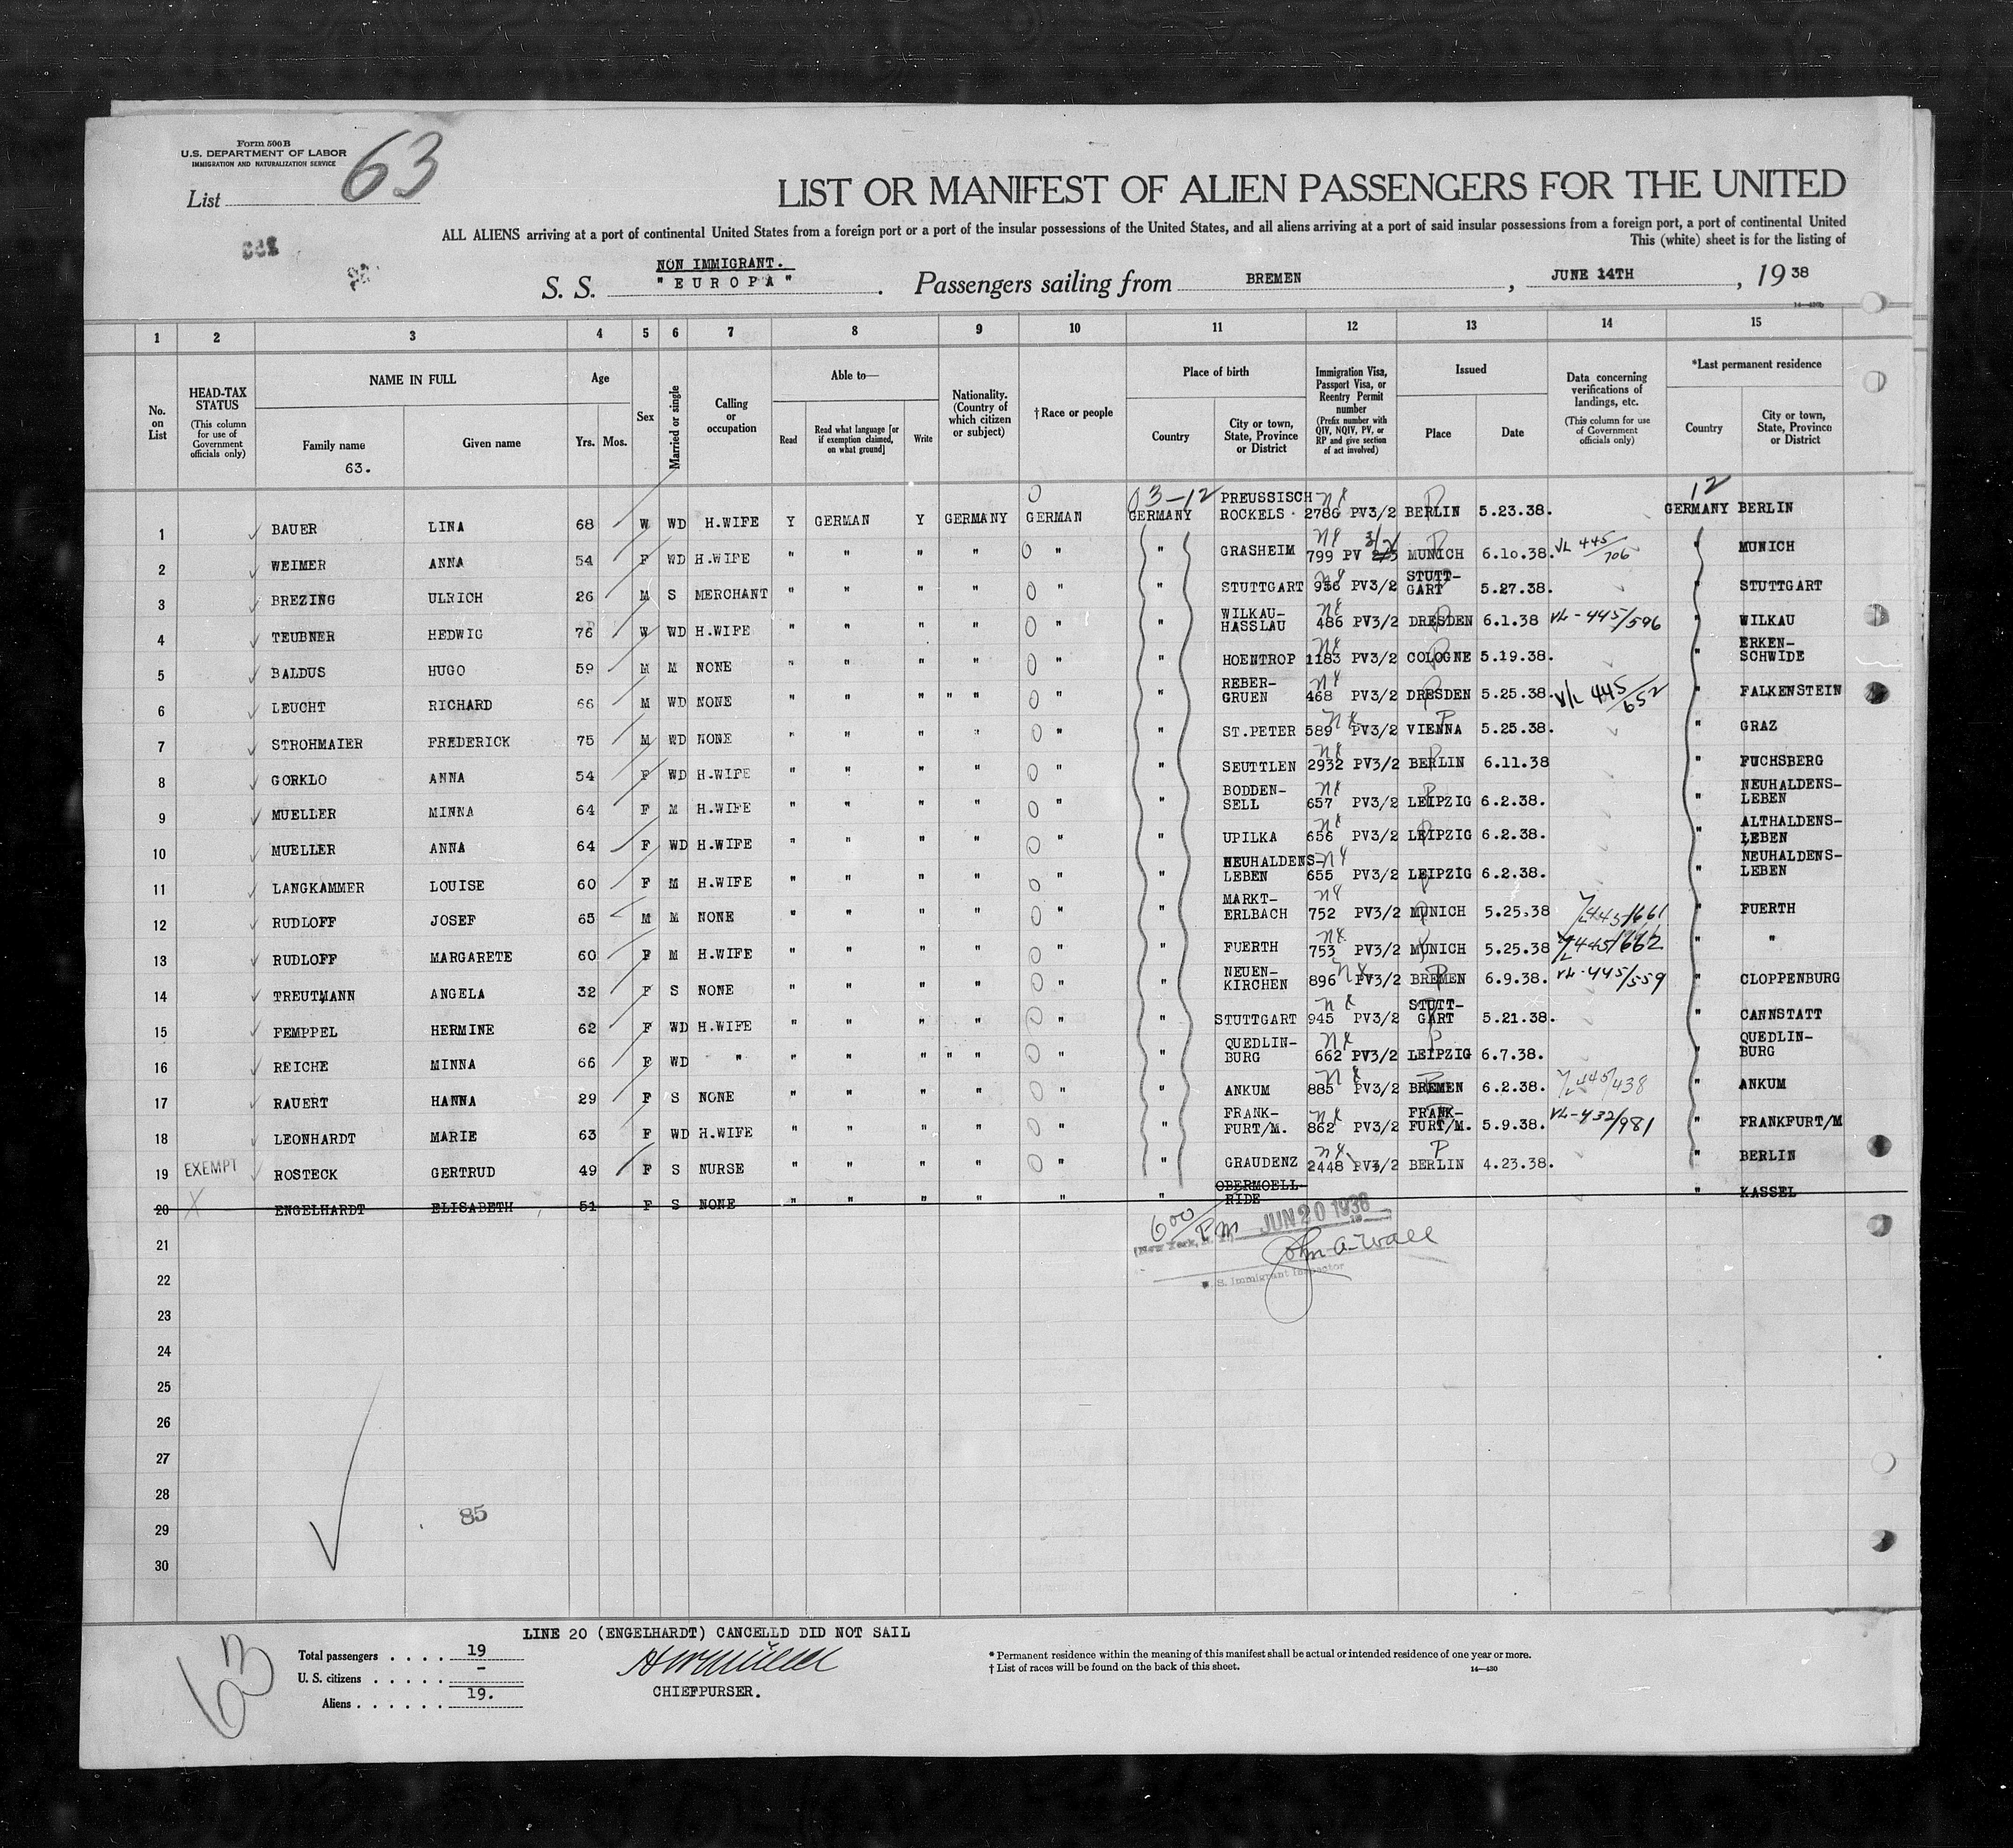 Form 500 B
U.S. DEPARTMENT OF LABOR
IMMIGRATION AND NATURALIZATION SERVICE
List 63
LIST OR MANIFEST OF ALIEN PASSENGERS FOR THE UNITED
ALL ALIENS arriving at a port of continental United States from a foreign port or a port of the insular possessions of the United States, and all aliens arriving at a port of said insular possessions from a foreign port, a port of continental United
This (white) sheet is for the listing of
NON IMMIGRANT.
S. S. "EUROPA". Passengers sailing from BREMEN, JUNE 14TH, 1938
1 2 3 4 5 6 7 8 9 10 11 12 13 14 15
No. on List
HEAD-TAX STATUS (This column for use of Government officials only)
NAME IN FULL
Family name 63.
Given name
Age Yrs. Mos.
Sex
Married or single
Calling or occupation
Able to—
Read
Read what language [or if exemption claimed, on what ground]
Write
Nationality. (Country of which citizen or subject)
†Race or people
Place of birth
Country
City or town, State, Province or District
Immigration Visa, Passport Visa, or Reentry Permit number (Prefix number with QIV, NQIV, PV, or RP and give section of act involved)
Issued
Place
Date
Data concerning verifications of landings, etc. (This column for use of Government officials only)
*Last permanent residence
Country
City or town, State, Province or District
03-12 12
1 BAUER LINA 68 W WD H.WIFE Y GERMAN Y GERMANY GERMAN GERMANY PREUSSISCH ROCKELS 2786 PV3/2 BERLIN 5.23.38. GERMANY BERLIN
2 WEIMER ANNA 54 F WD H.WIFE " " " " " " GRASHEIM 799 PV 3/2 MUNICH 6.10.38. VL 445/706 " MUNICH
3 BREZING ULRICH 26 M S MERCHANT " " " " " " STUTTGART 936 PV3/2 STUTT-GART 5.27.38. " STUTTGART
4 TEUBNER HEDWIG 76 W WD H.WIFE " " " " " " WILKAU-HASSLAU 486 PV3/2 DRESDEN 6.1.38 VL-445/596 " WILKAU
5 BALDUS HUGO 59 M M NONE " " " " " " HOENTROP 1183 PV3/2 COLOGNE 5.19.38. " ERKEN-SCHWIDE
6 LEUCHT RICHARD 66 M WD NONE " " " " " " " REBER-GRUEN 468 PV3/2 DRESDEN 5.25.38. V/L 445/652 " FALKENSTEIN
7 STROHMAIER FREDERICK 75 M WD NONE " " " " " " ST.PETER 589 PV3/2 VIENNA 5.25.38. " GRAZ
8 GORKLO ANNA 54 F WD H.WIFE " " " " " " SEUTTLEN 2932 PV3/2 BERLIN 6.11.38 " FUCHSBERG
9 MUELLER MINNA 64 F M H.WIFE " " " " " " BODDEN-SELL 657 PV3/2 LEIPZIG 6.2.38. " NEUHALDENS-LEBEN
10 MUELLER ANNA 64 F WD H.WIFE " " " " " " UPILKA 656 PV3/2 LEIPZIG 6.2.38. " ALTHALDENS-LEBEN
11 LANGKAMMER LOUISE 60 F M H.WIFE " " " " " " NEUHALDENS-LEBEN 655 PV3/2 LEIPZIG 6.2.38. " NEUHALDENS-LEBEN
12 RUDLOFF JOSEF 65 M M NONE " " " " " " MARKT-ERLBACH 752 PV3/2 MUNICH 5.25.38 V/L 445/661 " FUERTH
13 RUDLOFF MARGARETE 60 F M H.WIFE " " " " " " FUERTH 753 PV3/2 MUNICH 5.25.38 V/L 445/662 " "
14 TREUTMANN ANGELA 32 F S NONE " " " " " " NEUEN-KIRCHEN 896 PV3/2 BREMEN 6.9.38. VL-445/559 " CLOPPENBURG
15 FEMPPEL HERMINE 62 F WD H.WIFE " " " " " " STUTTGART 945 PV3/2 STUTT-GART 5.21.38. " CANNSTATT
16 REICHE MINNA 66 F WD " " " " " " " " QUEDLIN-BURG 662 PV3/2 LEIPZIG 6.7.38. " QUEDLIN-BURG
17 RAUERT HANNA 29 F S NONE " " " " " " ANKUM 885 PV3/2 BREMEN 6.2.38. V/L 445/438 " ANKUM
18 LEONHARDT MARIE 63 F WD H.WIFE " " " " " " FRANK-FURT/M. 862 PV3/2 FRANK-FURT/M. 5.9.38. VL-432/981 " FRANKFURT/M
19 EXEMPT ROSTECK GERTRUD 49 F S NURSE " " " " " " GRAUDENZ 2448 PV3/2 BERLIN 4.23.38. " BERLIN
20 X ENGELHARDT ELISABETH 51 F S NONE " " " " " " OBERMOELL-RIDE " KASSEL
21 600/PM JUN 20 1938
(New York, N. Y.)
John A. Wall
U. S. Immigrant Inspector
22
23
24
25
26
27
28
29
30
85
LINE 20 (ENGELHARDT) CANCELLD DID NOT SAIL
63
Total passengers . . . . 19
U. S. citizens . . . . . –
Aliens . . . . . . 19.
CHIEFPURSER.
* Permanent residence within the meaning of this manifest shall be actual or intended residence of one year or more.
† List of races will be found on the back of this sheet.
14—430